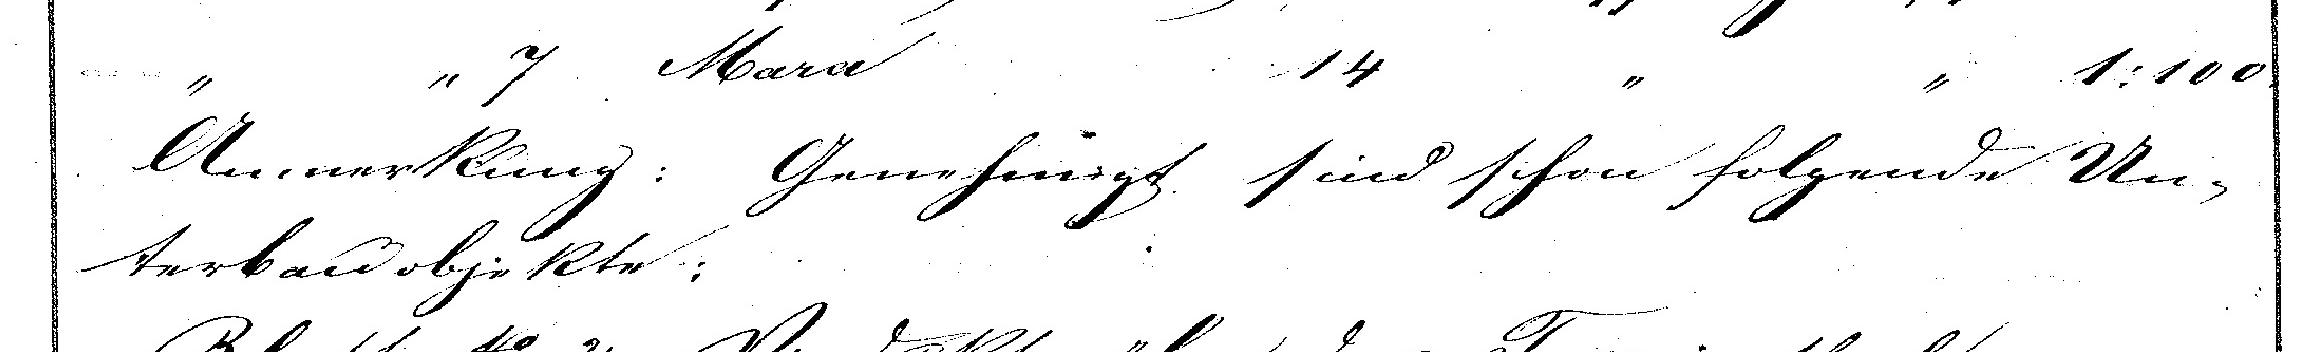 " " 7 Mara 14 " " 1:100.
Anmerkung: Genehmigt sind schon folgende Un-
terbauobjekte: